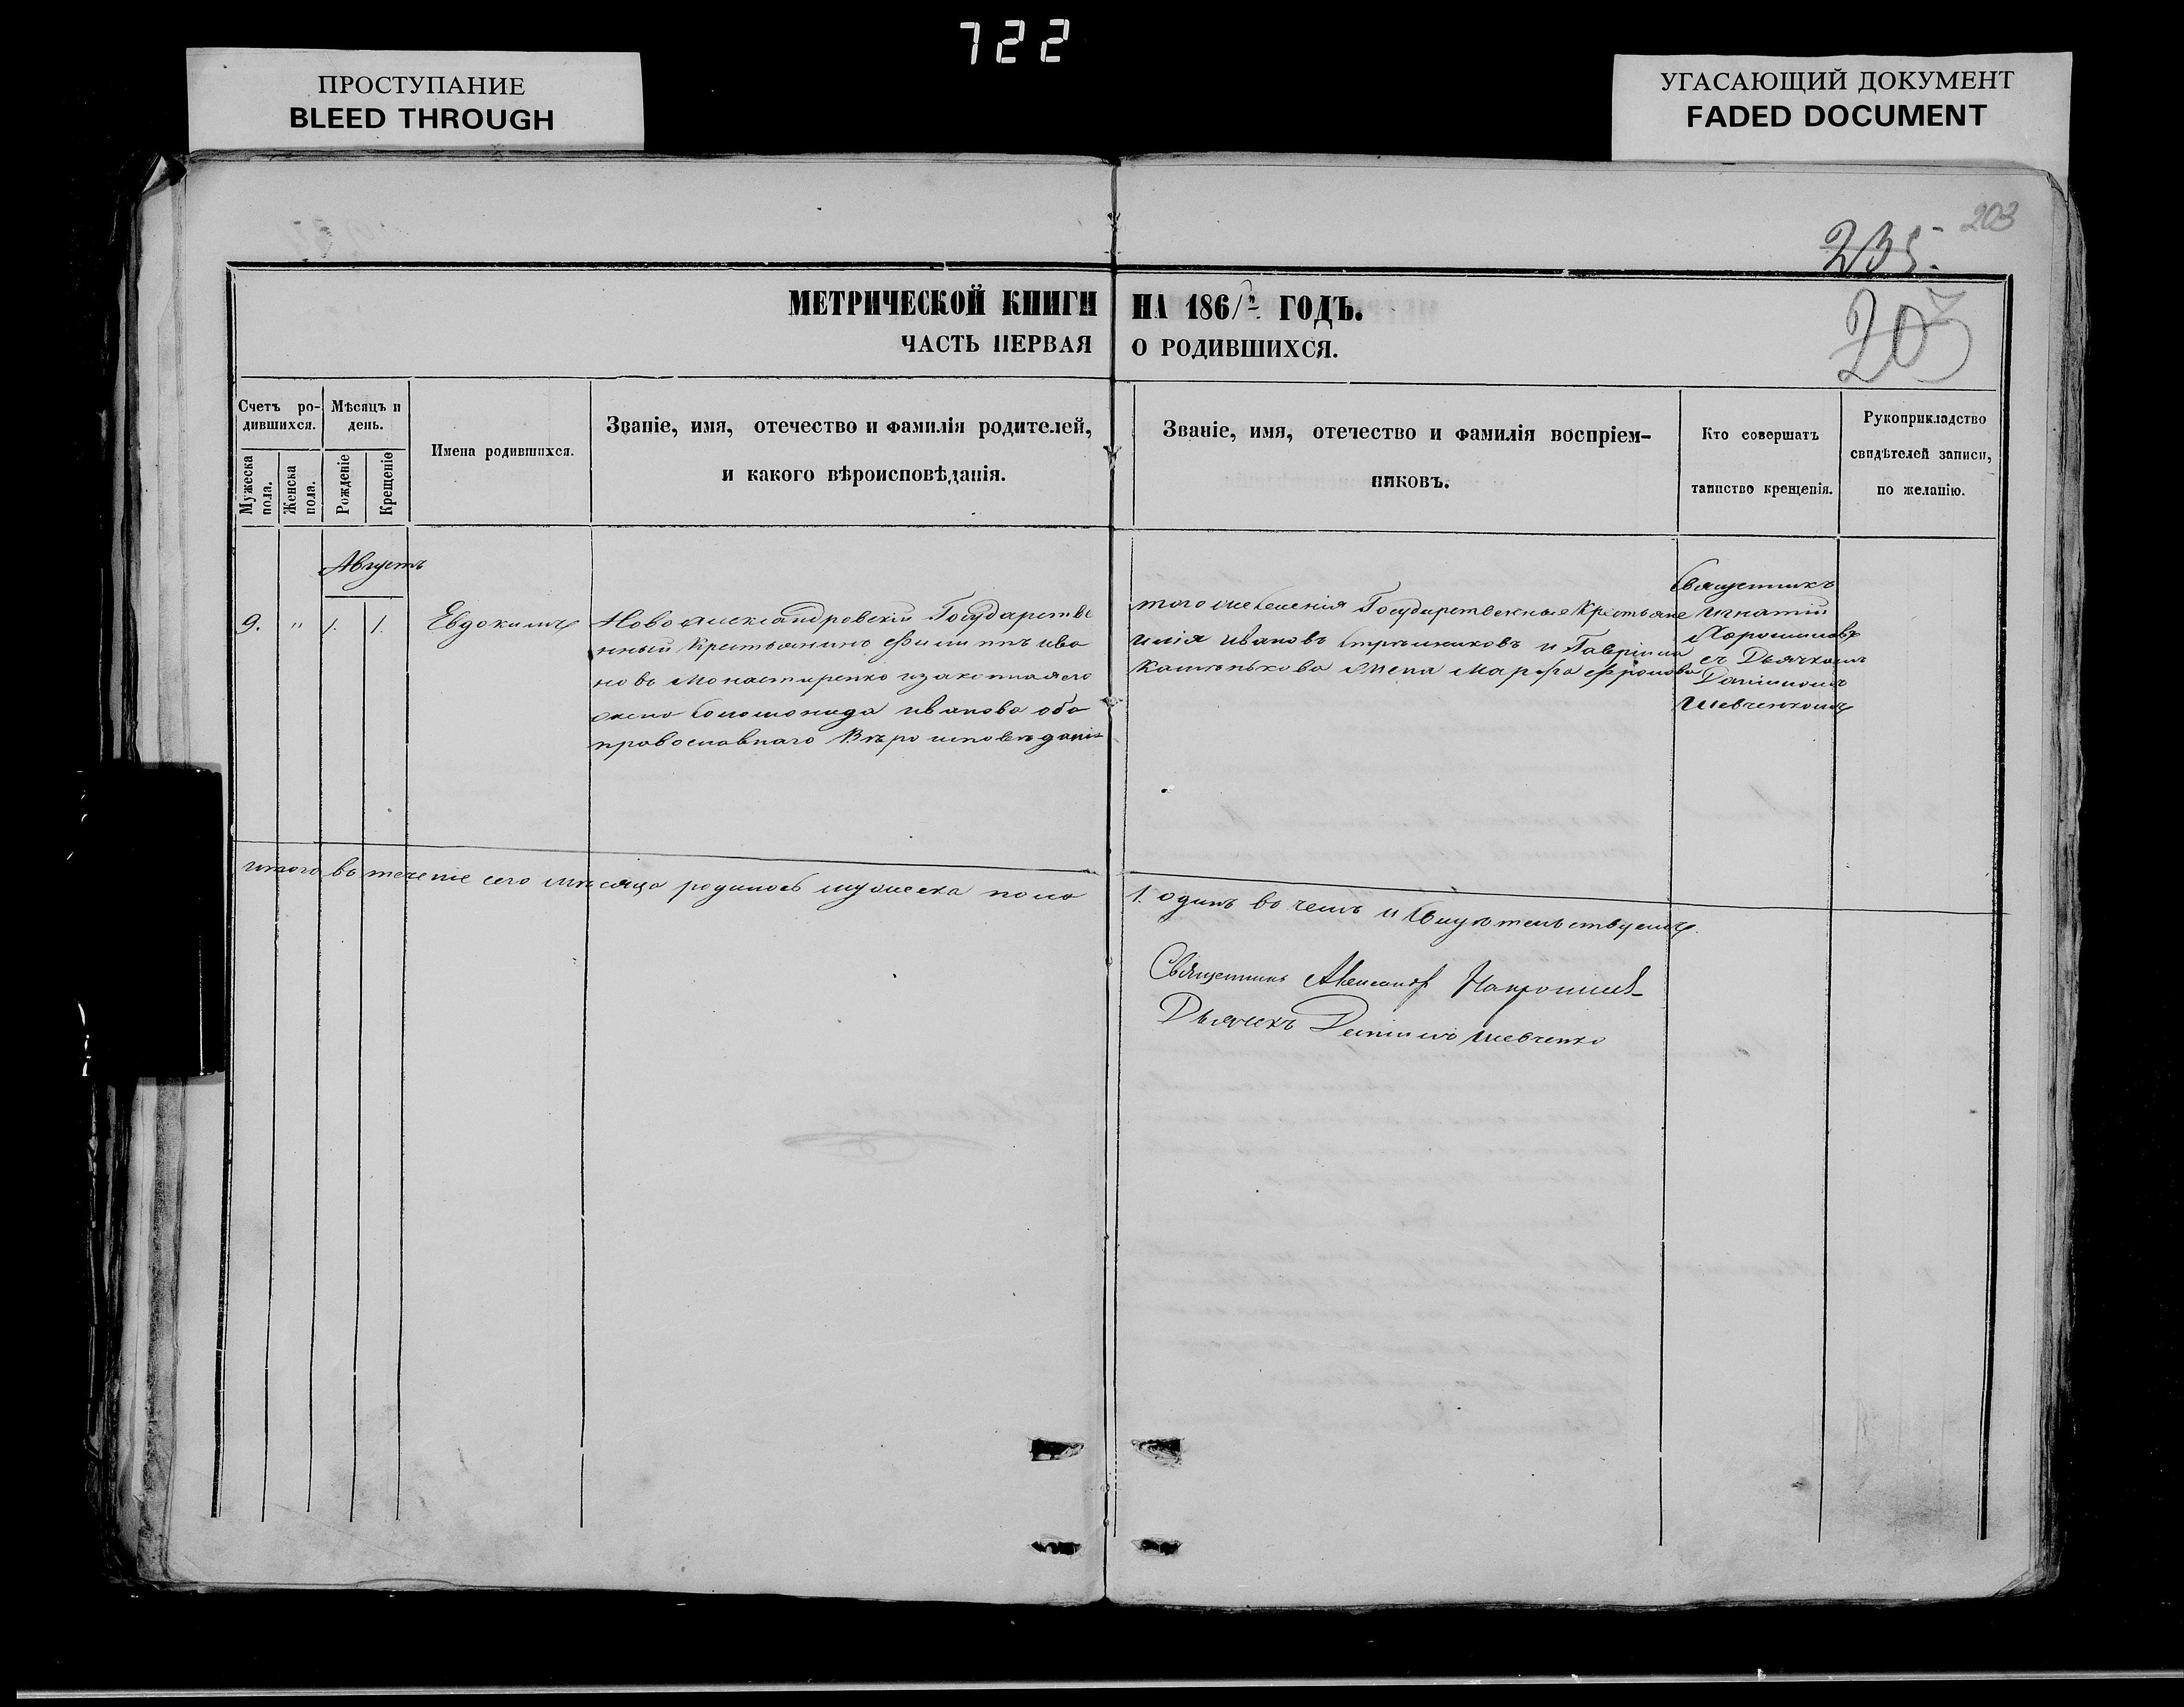 722
ПРОСТУПАНИЕ
BLEED THROUGH
УГАСАЮЩИЙ ДОКУМЕНТ
FADED DOCUMENT
203
235.
203
МЕТРИЧЕСКОЙ КНИГИ НА 186/2 ГОДЪ.
ЧАСТЬ ПЕРВАЯ О РОДИВШИХСЯ.
Счетъ ро-
дившихся.
Мужеска пола.
Женска пола.
Мѣсяцъ и
день.
Рожденіе
Крещеніе
Имена родившихся.
Званіе, имя, отечество и фамилія родителей,
и какого вѣроисповѣданія.
Званіе, имя, отечество и фамилія воспріем-
никовъ.
Кто совершатъ
таинство крещенія.
Рукоприкладство
свидѣтелей записи,
по желанію.
Августъ
9. " 1. 1. Евдокимъ
Новоалександровскій Государстве
нный Крестьянинъ Филиппъ ива
новъ Монастыренко изаконная его
жена Соломонида иванова оба
православнаго Вѣроисповѣданія
того же Селенія Государственные Крестьяне
Илія ивановъ Стрѣльниковъ и Гавріила
Калѣнькова Жена Марфа
Священникъ
Игнатій
съ Дьячкомъ
Даніиломъ
Шевченкомъ
итого въ теченіе сего мѣсяца родилось мужеска пола
1. одинъ въ чемъ и Свидѣтельствуемъ.
Священникъ
Дьячекъ Даніилъ Шевченко